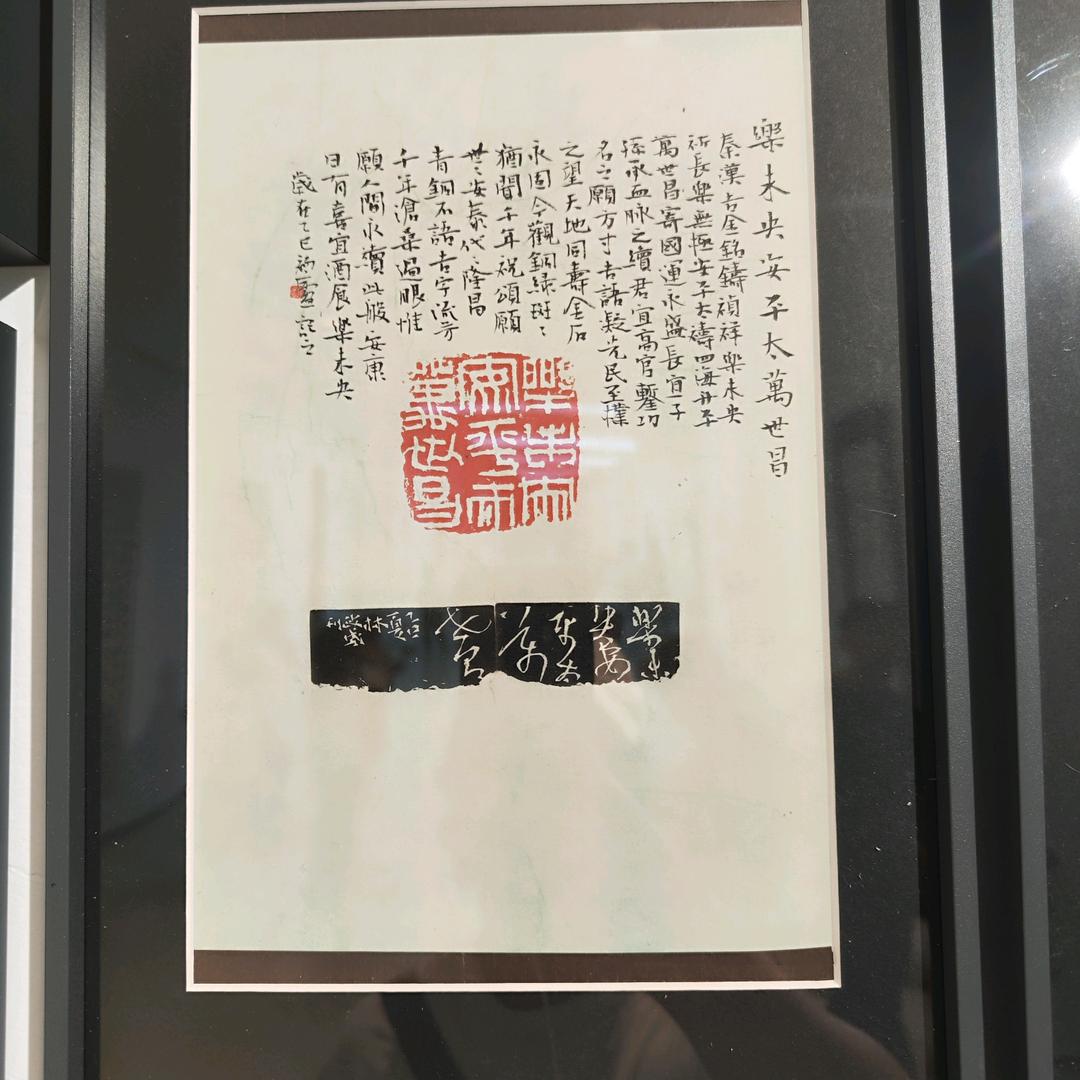 樂未央安平太萬世昌
秦漢吉金銘鑄禎祥樂未央
祈長樂無極安平太禱四海升平
萬世昌寄國運永盛長宜子
孫承血脉之續君宜高官鏨功
名之願方寸吉語凝先民至樸
之望天地同壽金石
永固今觀銅緑斑〻
猶聞千年祝頌願
世〻安泰代〻隆昌
青銅不語吉字流芳
千年滄桑過眼惟
願人間永續此般安康
日有喜宜酒食樂未央
歲在乙巳
記之
樂未央
安平太
萬世昌
樂未
央安
平太
萬
世昌
乙巳
夏
林